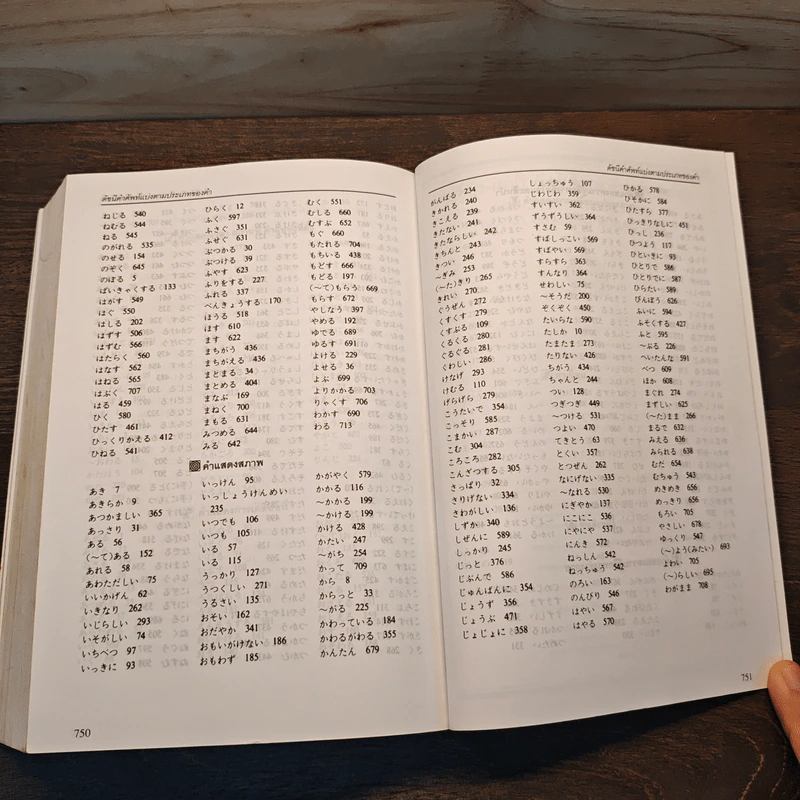 ดัชนีคำศัพท์แบ่งตามประเภทของคำ
ねじる 540
ねむる 544
ねる 545
のがれる 535
のせる 154
のぞく 645
のぼる 5
ばいきゃくする 133
はがす 549
はぐ 550
はしる 202
はずす 506
はずむ 566
はたらく 560
はなす 562
はねる 565
はぶく 707
はる 459
ひく 580
ひたす 461
ひっくりかえる 412
ひねる 541
ひらく 12
ふく 597
ふさぐ 351
ふせぐ 631
ぶつかる 30
ぶつける 39
ふやす 623
ふりをする 227
ふれる 337
べんきょうする 170
ほうる 518
ほす 610
ます 622
まちがう 436
まちがえる 436
まどまる 34
まとめる 404
まなぶ 169
まねく 700
まもる 631
みつめる 644
みる 642
むく 551
むしる 660
むすぶ 652
もぐ 660
もたれる 704
もちいる 438
もどす 666
もどる 197
(〜て)もらう 669
もらす 672
やしなう 397
やめる 192
ゆでる 689
ゆるす 691
よける 229
よせる 36
よぶ 699
よりかかる 703
りゃくす 706
わかす 690
わる 713
คำแสดงสภาพ
あき 7
あきらか 9
あつかましい 365
あっさり 31
ある 56
(〜て)ある 152
あれる 58
あわただしい 75
いいかげん 62
いきなり 262
いじらしい 293
いそがしい 74
いちべつ 97
いっきに 93
いっけん 95
いっしょうけんめい
235
いつでも 106
いつも 105
いる 57
いる 115
うっかり 127
うつくしい 271
うるさい 135
おそい 162
おだやか 341
おもいがけない 186
おもわず 185
かがやく 579
かかる 116
〜かかる 199
〜かける 199
かける 428
かたい 247
〜がち 254
かつて 709
から 8
からっと 33
〜がる 225
かわっている 184
かわるがわる 355
かんたん 679
750
ดัชนีคำศัพท์แบ่งตามประเภทของคำ
がんばる 234
きかれる 240
きこえる 239
きたない 241
きたならしい 242
きちんと 243
きつい 246
〜ぎみ 253
(〜た)きり 265
きれい 270
ぐうぜん 272
くすくす 279
くすぶる 109
くるくる 280
ぐるぐる 281
くわしい 286
けなげ 293
けむる 110
げらげら 279
こうたいで 354
こっそり 585
こまかい 287
こむ 304
ころころ 282
こんざつする 305
さっぱり 32
さりげない 334
さわがしい 136
しずか 340
しぜんに 589
しっかり 245
じっと 376
じぶんで 586
じゅんばんに 354
じょうず 356
じょうぶ 471
じょじょに 358
しょっちゅう 107
じわじわ 359
すいすい 362
ずうずうしい 364
すさむ 59
すばしっこい 569
すばやい 569
すらすら 363
すんなり 364
せわしい 75
〜そうだ 200
ぞくぞく 450
たいらな 590
たしか 10
たまたま 273
たりない 426
ちがう 434
ちゃんと 244
つい 128
つぎつぎ 449
〜つける 531
つよい 470
てきとう 63
とくい 357
とつぜん 262
なにげない 335
〜なれる 530
にぎやか 137
にこにこ 536
にやにや 537
にんき 572
ねっしん 542
ねっちゅう 542
のろい 163
のんびり 546
はやい 567
はやる 570
ひかる 578
ひそかに 584
ひたすら 377
ひっきりなしに 451
ひっし 236
ひつよう 117
ひといきに 93
ひとりで 586
ひとりでに 587
ひらたい 589
びんぼう 626
ふいに 594
ふそくする 427
ふと 595
〜ぶる 226
へいたんな 591
べつ 609
ほか 608
まぐれ 274
まずしい 625
(〜た)まま 266
まるで 632
みえる 636
みられる 638
むだ 654
むちゅう 543
めきめき 656
めっきり 656
もろい 705
やさしい 678
ゆっくり 547
(〜)よう(みたい) 693
よわい 705
(〜)らしい 695
わがまま 708
751